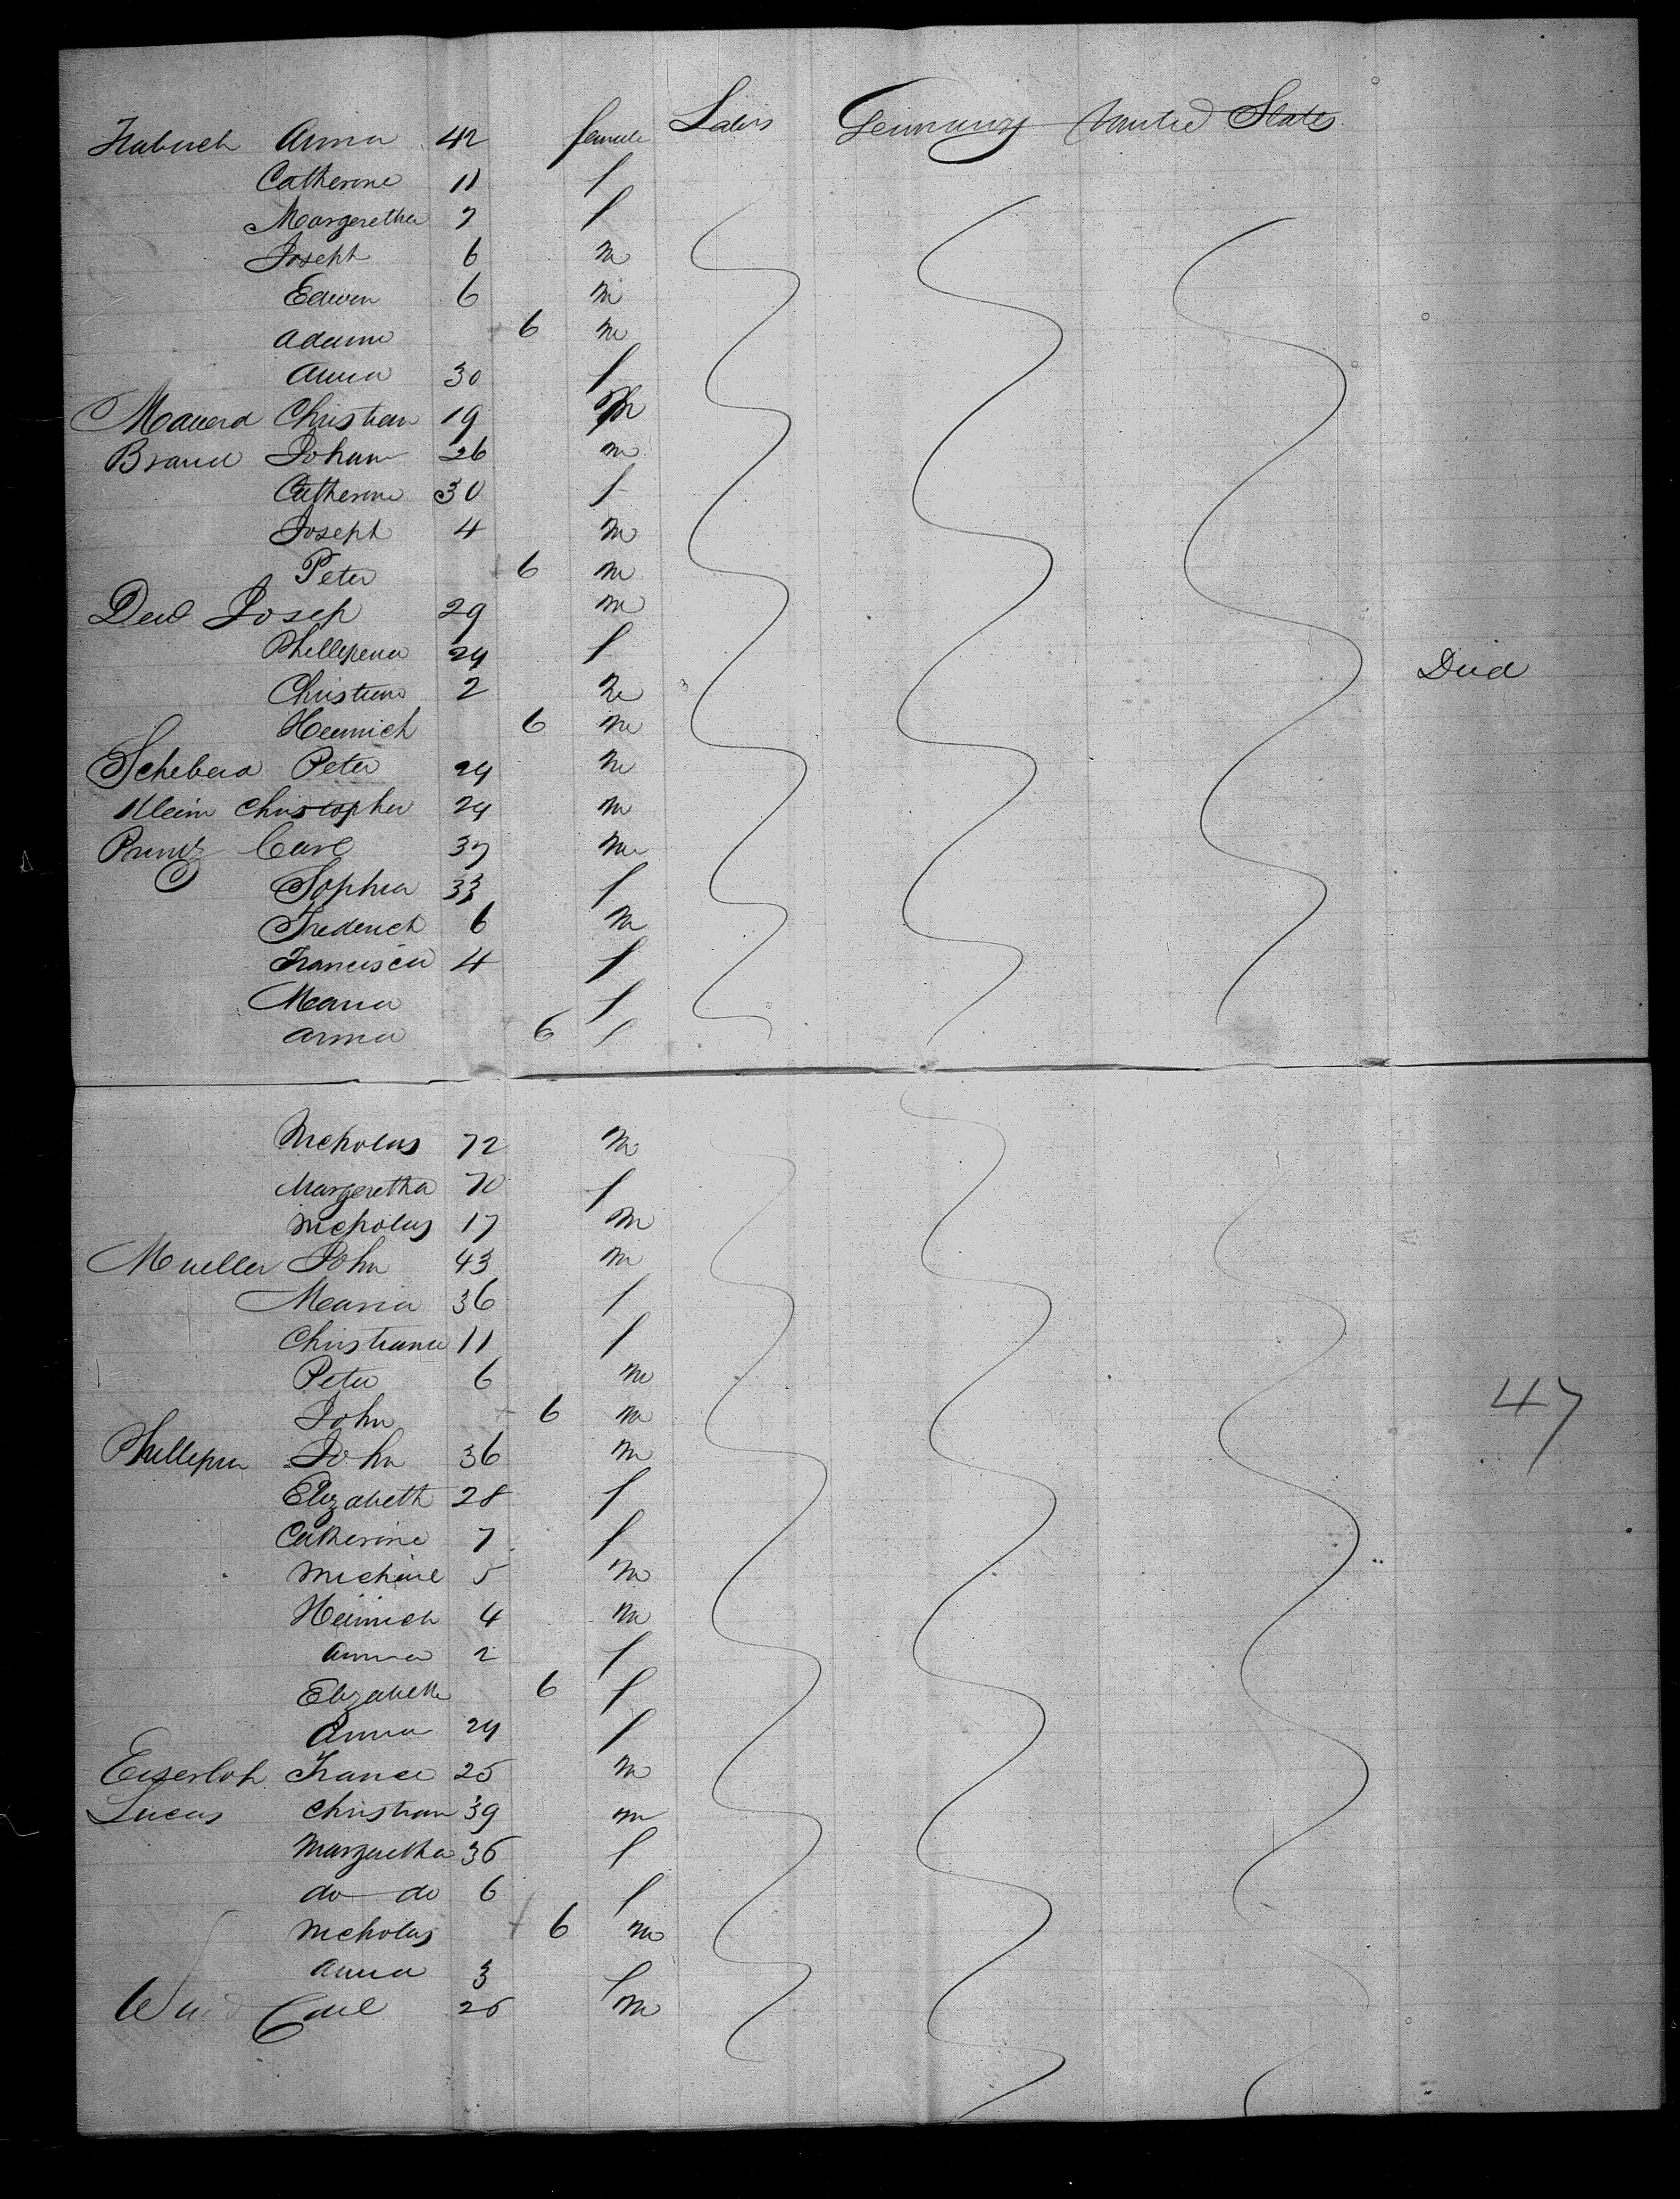 Anna 42 female Germany United States
Catherine 11 f
Margeretha 7 f
Joseph 6 m
Edwin 6 m
Adam 6 m
Anna 30 f
Christian 19 m
Johann 26 m
Catherine 30 f
Joseph 4 m
Peter 6 m
Josep 29 m
Phillepena 24 f Died
Christian 2 m
Heinrich 6 m
Peter 24 m
Klein Christopher 24 m
Carl 37 m
Sophia 33 f
Frederich 6 m
Francisca 4 f
Maria f
Anna 6 f
Nicholas 72 m
Margeretha 70 f
Nicholas 17 m
Mueller John 43 m
Maria 36 f
Christiana 11 f
Peter 6 m
John 6 m
47
John 36 m
Elizabeth 28 f
Catherine 7 f
Michael 5 m
Heinrich 4 m
Anna 2 f
Elizabeth 6 f
Anna 24 f
Eiserloh 25 m
Lucas Christian 39 m
Margaretha 36 f
do do 6 f
Nicholas 6 m
Anna 3 f
Carl m